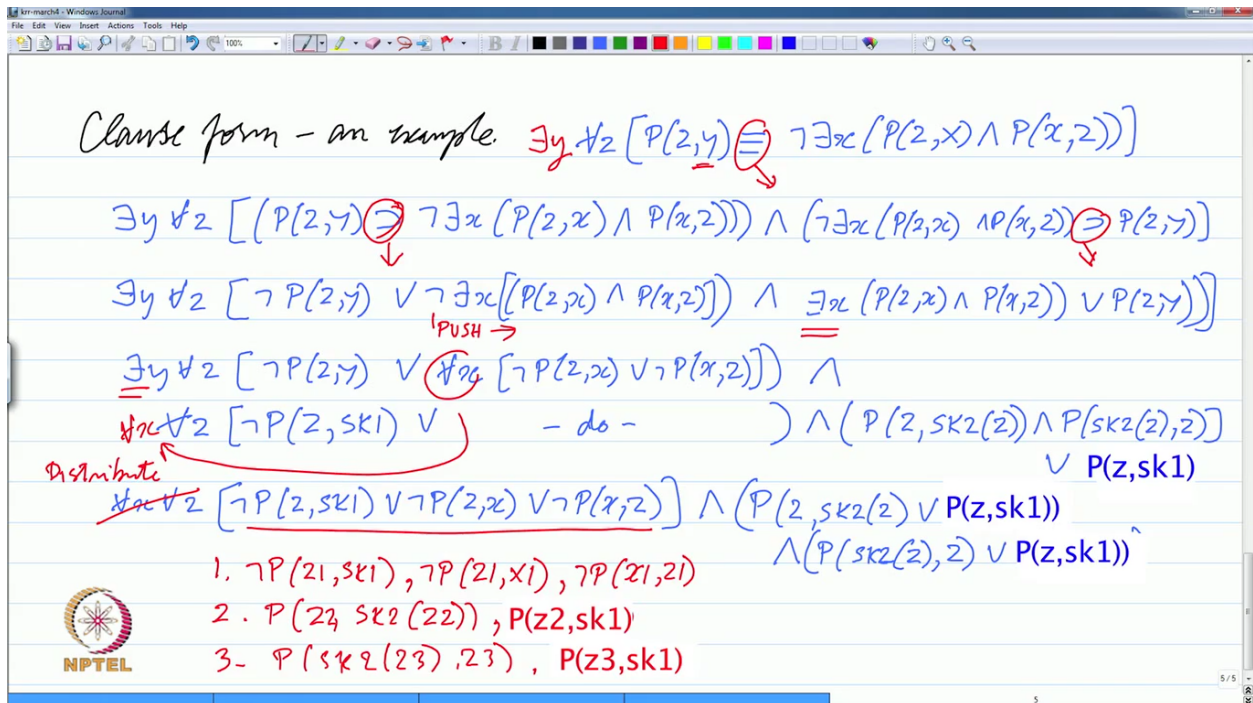 krr-march4 - Windows Journal
File Edit View Insert Actions Tools Help
100%
B I
Clause form – an example. ∃y ∀z [P(z,y) ≡ ¬∃x(P(z,x) ∧ P(x,z))]
∃y ∀z [(P(z,y) ⊃ ¬∃x(P(z,x) ∧ P(x,z))) ∧ (¬∃x(P(z,x) ∧P(x,z)) ⊃ P(z,y)]
∃y ∀z [¬P(z,y) ∨ ¬∃x[(P(z,x) ∧ P(x,z)]) ∧ ∃x (P(z,x) ∧ P(x,z)) ∨ P(z,y))]
PUSH →
∃y ∀z [¬P(z,y) ∨ ∀x [¬P(z,x) ∨ ¬P(x,z)]) ∧
∀x ∀z [¬P(z,sk1) ∨ – do – ) ∧ (P(z,sk2(z)) ∧ P(sk2(z),z)]
∨ P(z,sk1)
Distribute
∀x ∀z [¬P(z,sk1) ∨ ¬P(z,x) ∨ ¬P(x,z)] ∧ (P(z,sk2(z) ∨ P(z,sk1))
∧(P(sk2(z),z) ∨ P(z,sk1))
1. ¬P(z1,sk1), ¬P(z1,x1), ¬P(x1,z1)
2. P(z2, sk2(z2)), P(z2,sk1)
3- P(sk2(z3),z3), P(z3,sk1)
NPTEL
5/5
5